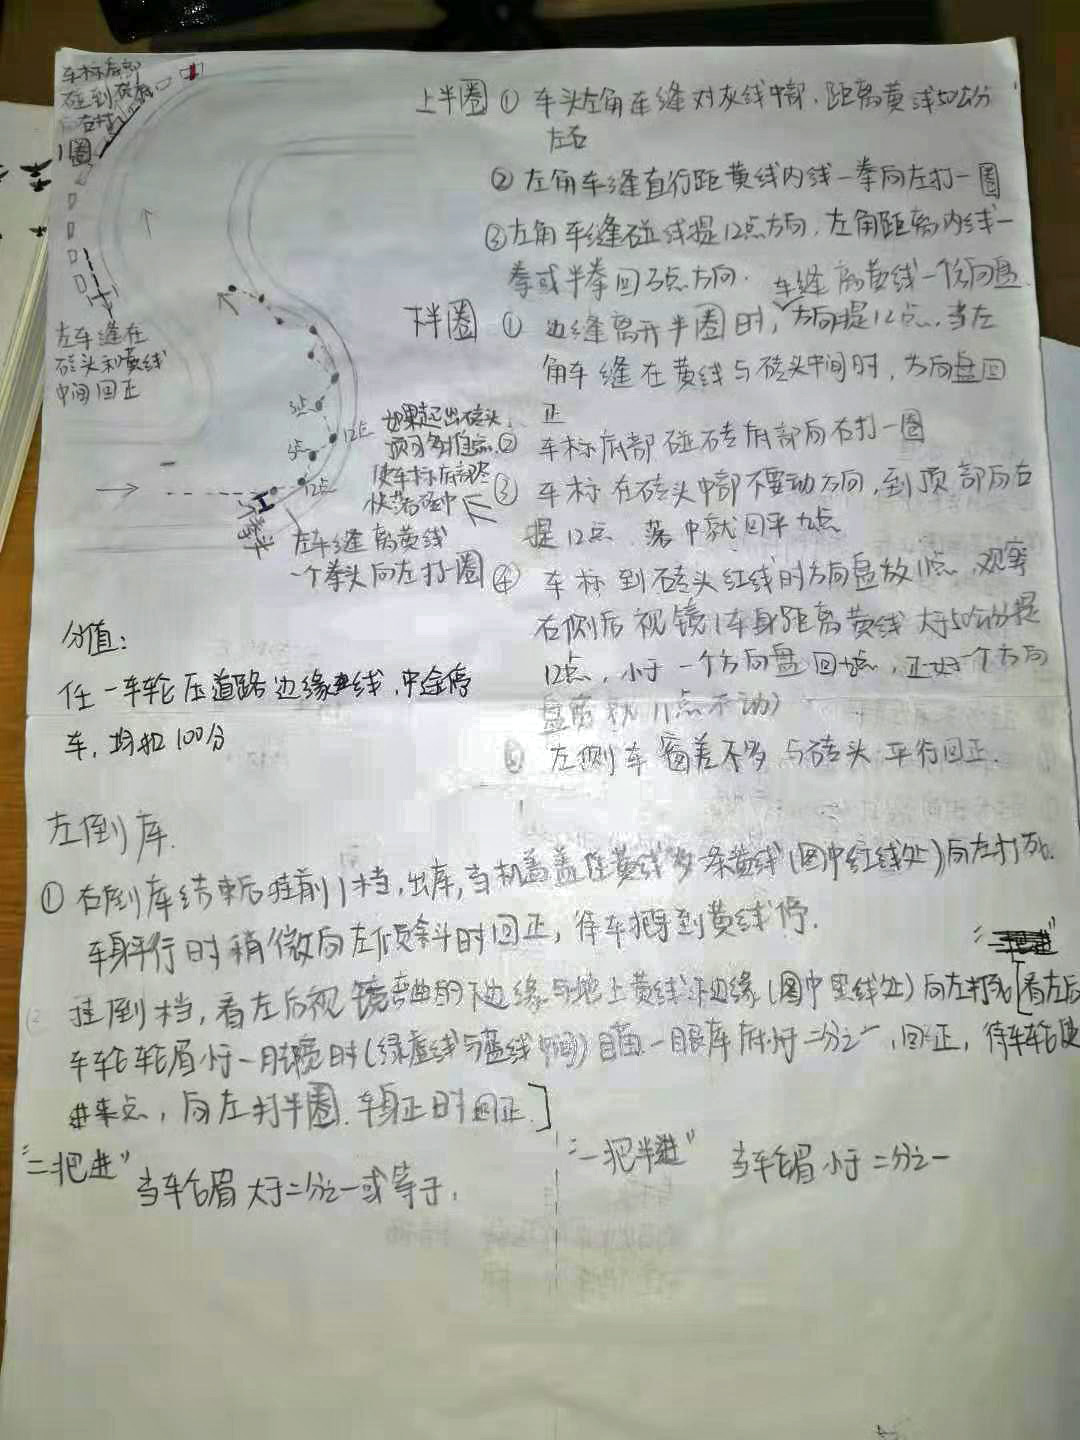 车标底部
碰到砖角
右打
1圈
左车缝在
砖头和黄线
中间回正
上半圈 ① 车头左角车缝对灰线中部,距离黄线50公分
左右
② 左角车缝直行距黄线内线一拳向左打一圈
③ 左角车缝碰线提12点方向,左角距离内线一
拳或半拳回3点方向. 车缝离黄线一个方向盘
半圈 ① 边缝离开半圈时,方向提12点,当左
角车缝在黄线与砖头中间时,方向盘回
正
② 车标底部碰砖底部向右打一圈
③ 车标在砖头中部不要动方向,到顶部后右
提12点,落中就回平九点
④ 车标到砖头红线时方向盘放11点,观察
右侧后视镜(车身距离黄线大于50公分提
12点,小于一个方向盘回九点,正好一个方向
盘就11点不动)
左侧车窗差不多与砖头平行回正.
3点
12点
12点
如果超出砖头,
使车标底部尽
快落砖中
一拳头
左车缝离黄线
一个拳头向左打一圈
分值:
任一车轮压道路边缘线,中途停
车,均扣100分
左倒库.
① 右倒库结束后挂前1档,出库,当机盖盖住黄线多一条黄线(图中红线处)向左打死.
车身平行时稍微向左倾斜时回正,待车把手到黄线停.
挂倒档,看左后视镜弯曲的下边缘与地上黄线下边缘(图中黑线处)向左打死[看左后
车轮轮眉小于一脚宽时(绿虚线与蓝线中间) 一眼库 小于二分之一,回正,待车轮
进来点,向左打半圈.车身正时回正.]
"二把进" 当车轮眉大于二分之一或等于.
"一把半进" 当车轮眉小于二分之一